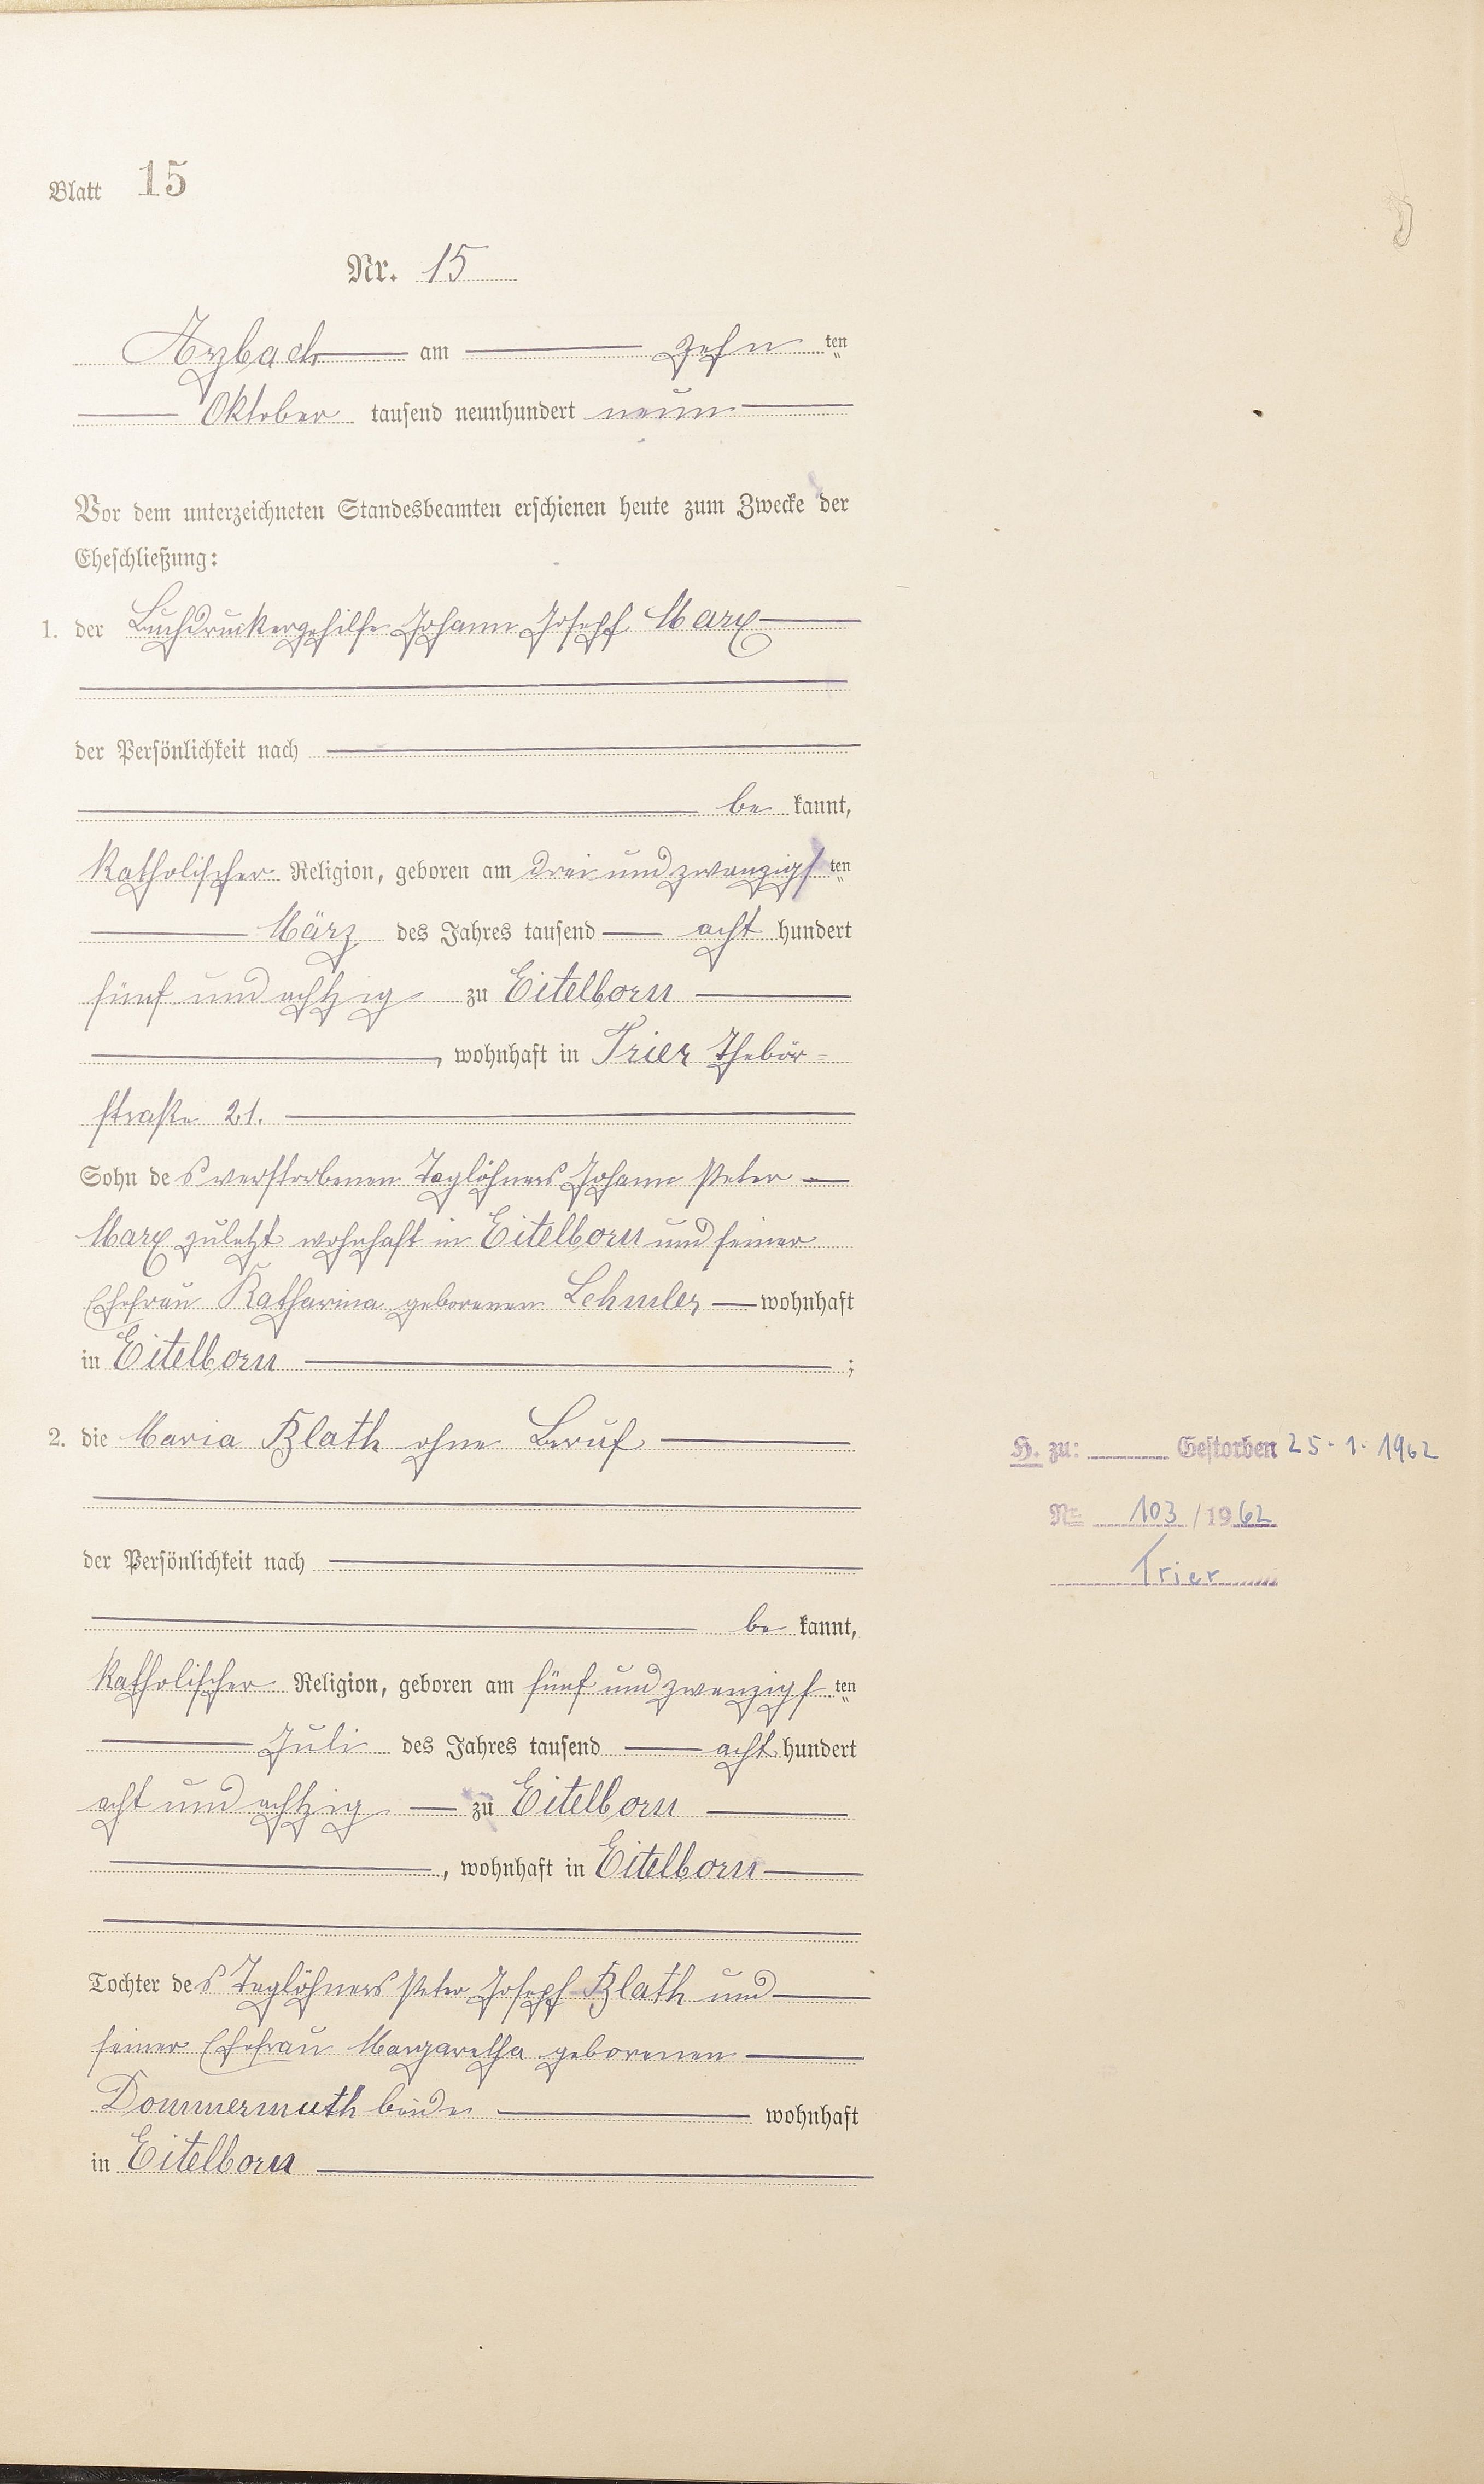 Blatt 15
Nr. 15
Arzbach am zehn ten
Oktober tausend neunhundert neun
Vor dem unterzeichneten Standesbeamten erschienen heute zum Zwecke der
Eheschließung:
1. der Buchdruckergehilfe Johann Joseph Marx
der Persönlichkeit nach
be kannt,
Katholischer Religion, geboren am drei und zwanzigs ten
März des Jahres tausend acht hundert
fünf und achtzig zu Eitelborn
, wohnhaft in Trier Thebär-
straße 21.
Sohn des verstorbenen Taglöhners Johann Peter
Marx zuletzt wohnhaft in Eitelborn und seiner
Ehefrau Katharina geborenen Lehmler wohnhaft
in Eitelborn ;
2. die Maria Blath ohne Beruf
der Persönlichkeit nach
be kannt,
Katholischer Religion, geboren am fünf und zwanzigs ten
Juli des Jahres tausend acht hundert
acht und achtzig zu Eitelborn
, wohnhaft in Eitelborn
Tochter des Taglöhners Peter Joseph Blath und
seiner Ehefrau Margaretha geborenen
Dommermuth beide wohnhaft
in Eitelborn
H. zu: Gestorben 25.1.1962
Nr. 103/1962
Trier